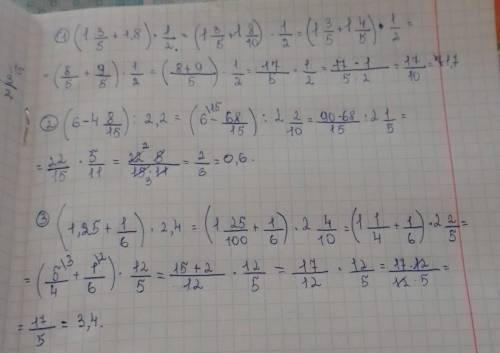 ① (1 3/5 + 1,8) · 1/2 = (1 3/5 + 1 8/10) · 1/2 = (1 3/5 + 1 4/5) · 1/2 =
= (8/5 + 9/5) · 1/2 = (8+9)/5 · 1/2 = 17/5 · 1/2 = 17·1/5·2 = 17/10 = 1,7
② (6 - 4 8/15) : 2,2 = (6\15 - 68/15) : 2 2/10 = 90-68/15 : 2 1/5 =
= 22/15 · 5/11 = 22 2 5/15 3 · 11 = 2/3 = 0,6.
③ (1,25 + 1/6) · 2,4 = (1 25/100 + 1/6) · 2 4/10 = (1 1/4 + 1/6) · 2 2/5 =
= (5\3/4 + 1\2/6) · 12/5 = 15+2/12 · 12/5 = 17/12 · 12/5 = 17·12/12·5 =
= 17/5 = 3,4.